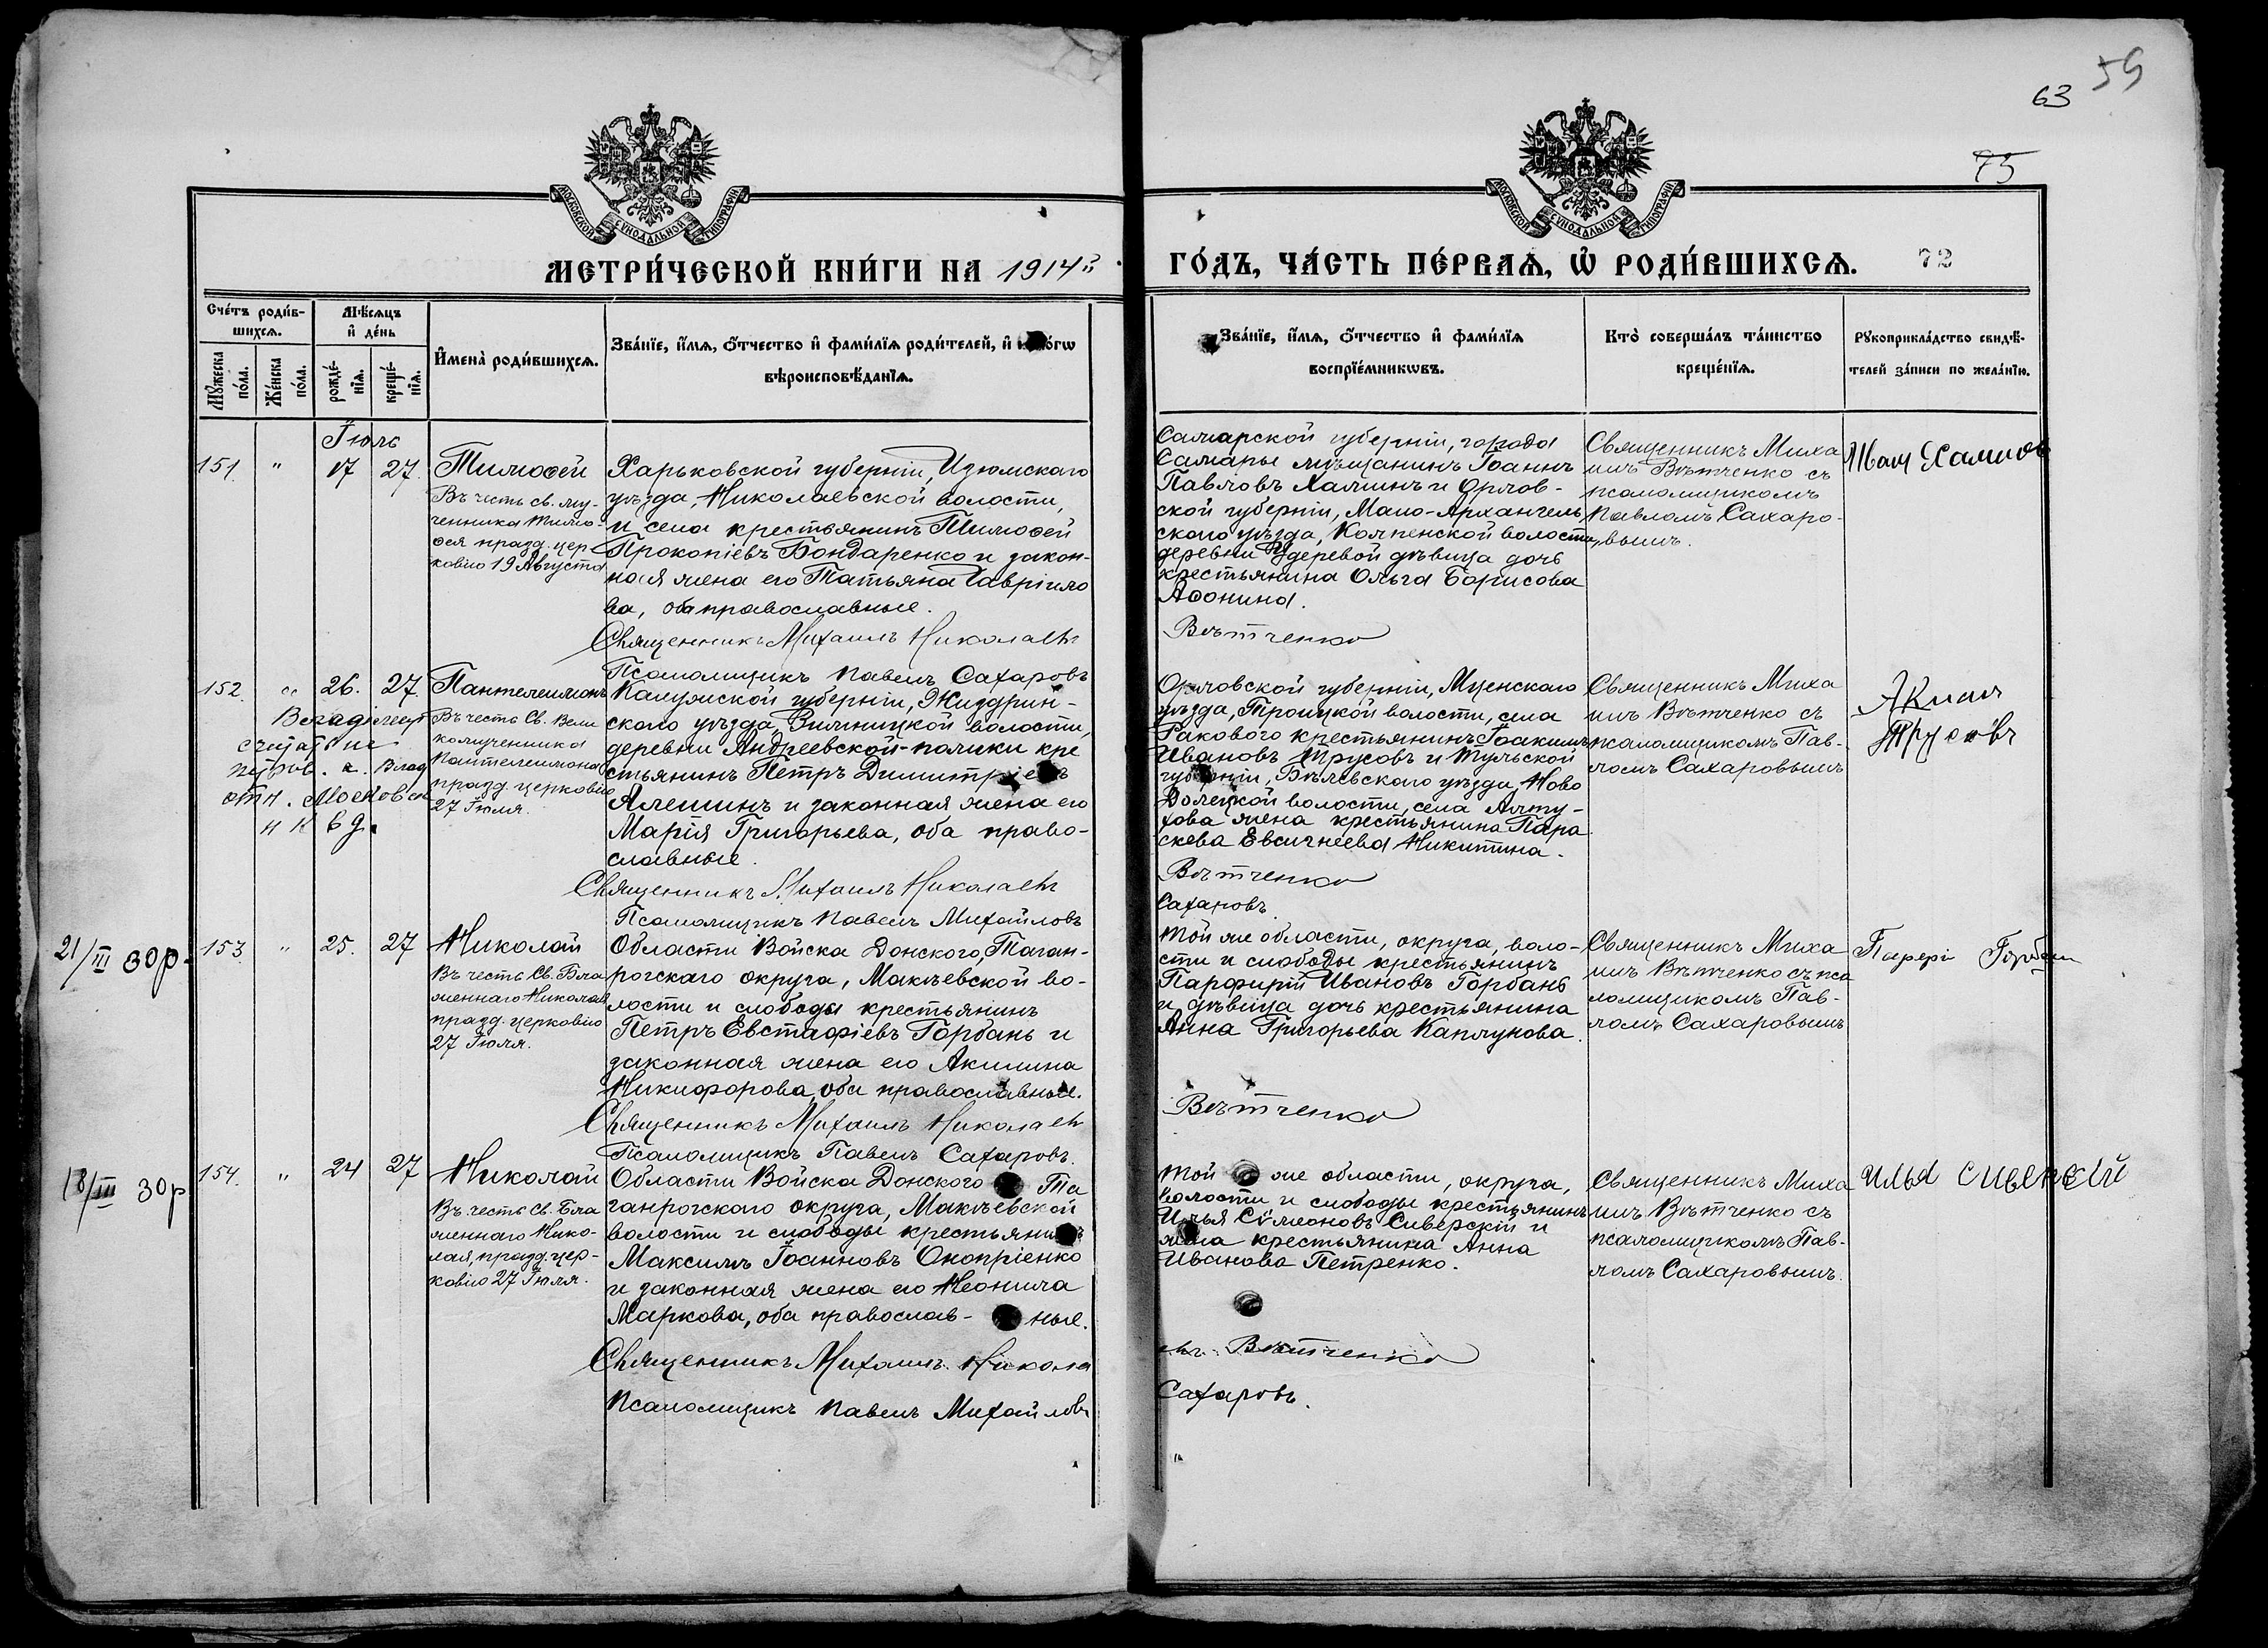 59
63
75
МОСКОВСКОЙ СѴНОДАЛЬНОЙ ТИПОГРАФІИ
МОСКОВСКОЙ СѴНОДАЛЬНОЙ ТИПОГРАФІИ
МЕТРИ́ЧЕСКОЙ КНИ́ГИ НА 1914й
ГО́ДЪ, ЧА́СТЬ ПЕ́РВАѦ, Ѡ҆ РОДИ́ВШИХСѦ.
72
Сче́тъ роди́в-
шихсѧ.
Мѣ́сѧцъ
и҆ де́нь
Мꙋ́жеска
по́ла.
Же́нска
по́ла.
рожде́-
нїѧ.
креще́-
нїѧ.
И҆мена̀ роди́вшихсѧ.
Зва́нїе, и҆́мѧ, ѻ҆́тчество и҆ фами́лїѧ роди́телей, и҆
вѣроисповѣ́данїѧ.
Зва́нїе, и҆́мѧ, ѻ҆́тчество и҆ фами́лїѧ
воспрїе́мникѡвъ.
Кто̀ соверша́лъ та́инство
креще́нїѧ.
Рꙋкоприкла́дство свидѣ́-
телей за́писи по жела́нїю.
Іюль
151. " 17 27.
Тимоѳей
Въ честь св. му-
ченика Тимо-
ѳея празд. цер-
ковію 19 Августа
Харьковской губерніи, Изюмскаго
уѣзда, Николаевской волости,
и села крестьянинъ Тимоѳей
Прокопіевъ Бондаренко и закон-
ная жена его Татьяна Гавріило
ва, оба православные.
Священникъ Михаилъ Николаевъ
Псаломщикъ Павелъ Сахаровъ
Самарской губерніи, города
Самары мѣщанинъ Іоаннъ
Павловъ Халминъ и Орлов-
ской губерніи, Мало-Архангель
скаго уѣзда, Колпенской волости,
деревни Удеревой дѣвица дочь
крестьянина Ольга Борисова
Аѳонина.
Вѣтченко
Священникъ Миха
илъ Вѣтченко съ
псаломщикомъ
Павломъ Сахаро-
вымъ.
152. " 26. 27.
Пантелеимонъ
Въ честь Св. Вели
комученника
Пантелеимона
празд. церковію
27 Іюля.
считать
Калужской губерніи, Жиздрин-
скаго уѣзда, Зикѣницкой волости,
деревни Андреевской-полики кре
стьянинъ Петръ Димитріевъ
Алешинъ и законная жена его
Марія Григорьева, оба право-
славные.
Священникъ Михаилъ Николаевъ
Псаломщикъ Павелъ Михайловъ
Орловской губерніи, Мценскаго
уѣзда, Троицкой волости, села
Гакового крестьянинъ Іоакимъ
Ивановъ Трусовъ и Тульской
губерніи, Бѣлевскаго уѣзда, Ново
Долецкой волости, села Алту-
хова жена крестьянина Пара
скева Евсигнеева Никитина.
Вѣтченко
Сахаровъ
Священникъ Миха
илъ Вѣтченко съ
псаломщикомъ Пав-
ломъ Сахаровымъ
Аким
Трусовъ
21/III 30р.
153. " 25. 27
Николай
Въ честь Св. Бла
женнаго Николая
празд. церковію
27 Іюля.
Области Войска Донского, Таган-
рогскаго округа, Макѣевской во-
лости и слободы крестьянинъ
Петръ Евстафіевъ Горбань и
законная жена его Акилина
Никифорова, оба православные.
Священникъ Михаилъ Николаевъ
Псаломщикъ Павелъ Сахаровъ.
Той же области, округа, воло-
сти и слободы крестьянинъ
Парфирій Ивановъ Горбань
и дѣвица дочь крестьянина
Анна Григорьева Каплунова.
Вѣтченко
Священникъ Миха
илъ Вѣтченко съ пса
ломщикомъ Пав-
ломъ Сахаровымъ
18/III 30р
154. " 24 27
Николай
Въ честь Св. Бла
женнаго Нико-
лая, празд. цер-
ковію 27 Іюля.
Области Войска Донского Та
ганрогскаго округа, Макѣевской
волости и слободы крестьянинъ
Максимъ Іоанновъ Оноприенко
и законная жена его Неонила
Маркова, оба православ-ные.
Священникъ Михаилъ Никола
Псаломщикъ Павелъ Михайловъ
Той же области, округа,
волости и слободы крестьянинъ
Илья Сѵмеоновъ Сиверскій и
жена крестьянина Анна
Иванова Петренко.
евъ Вѣтченко
Сахаровъ.
Священникъ Миха
илъ Вѣтченко съ
псаломщикомъ Пав-
ломъ Сахаровымъ.
Илья